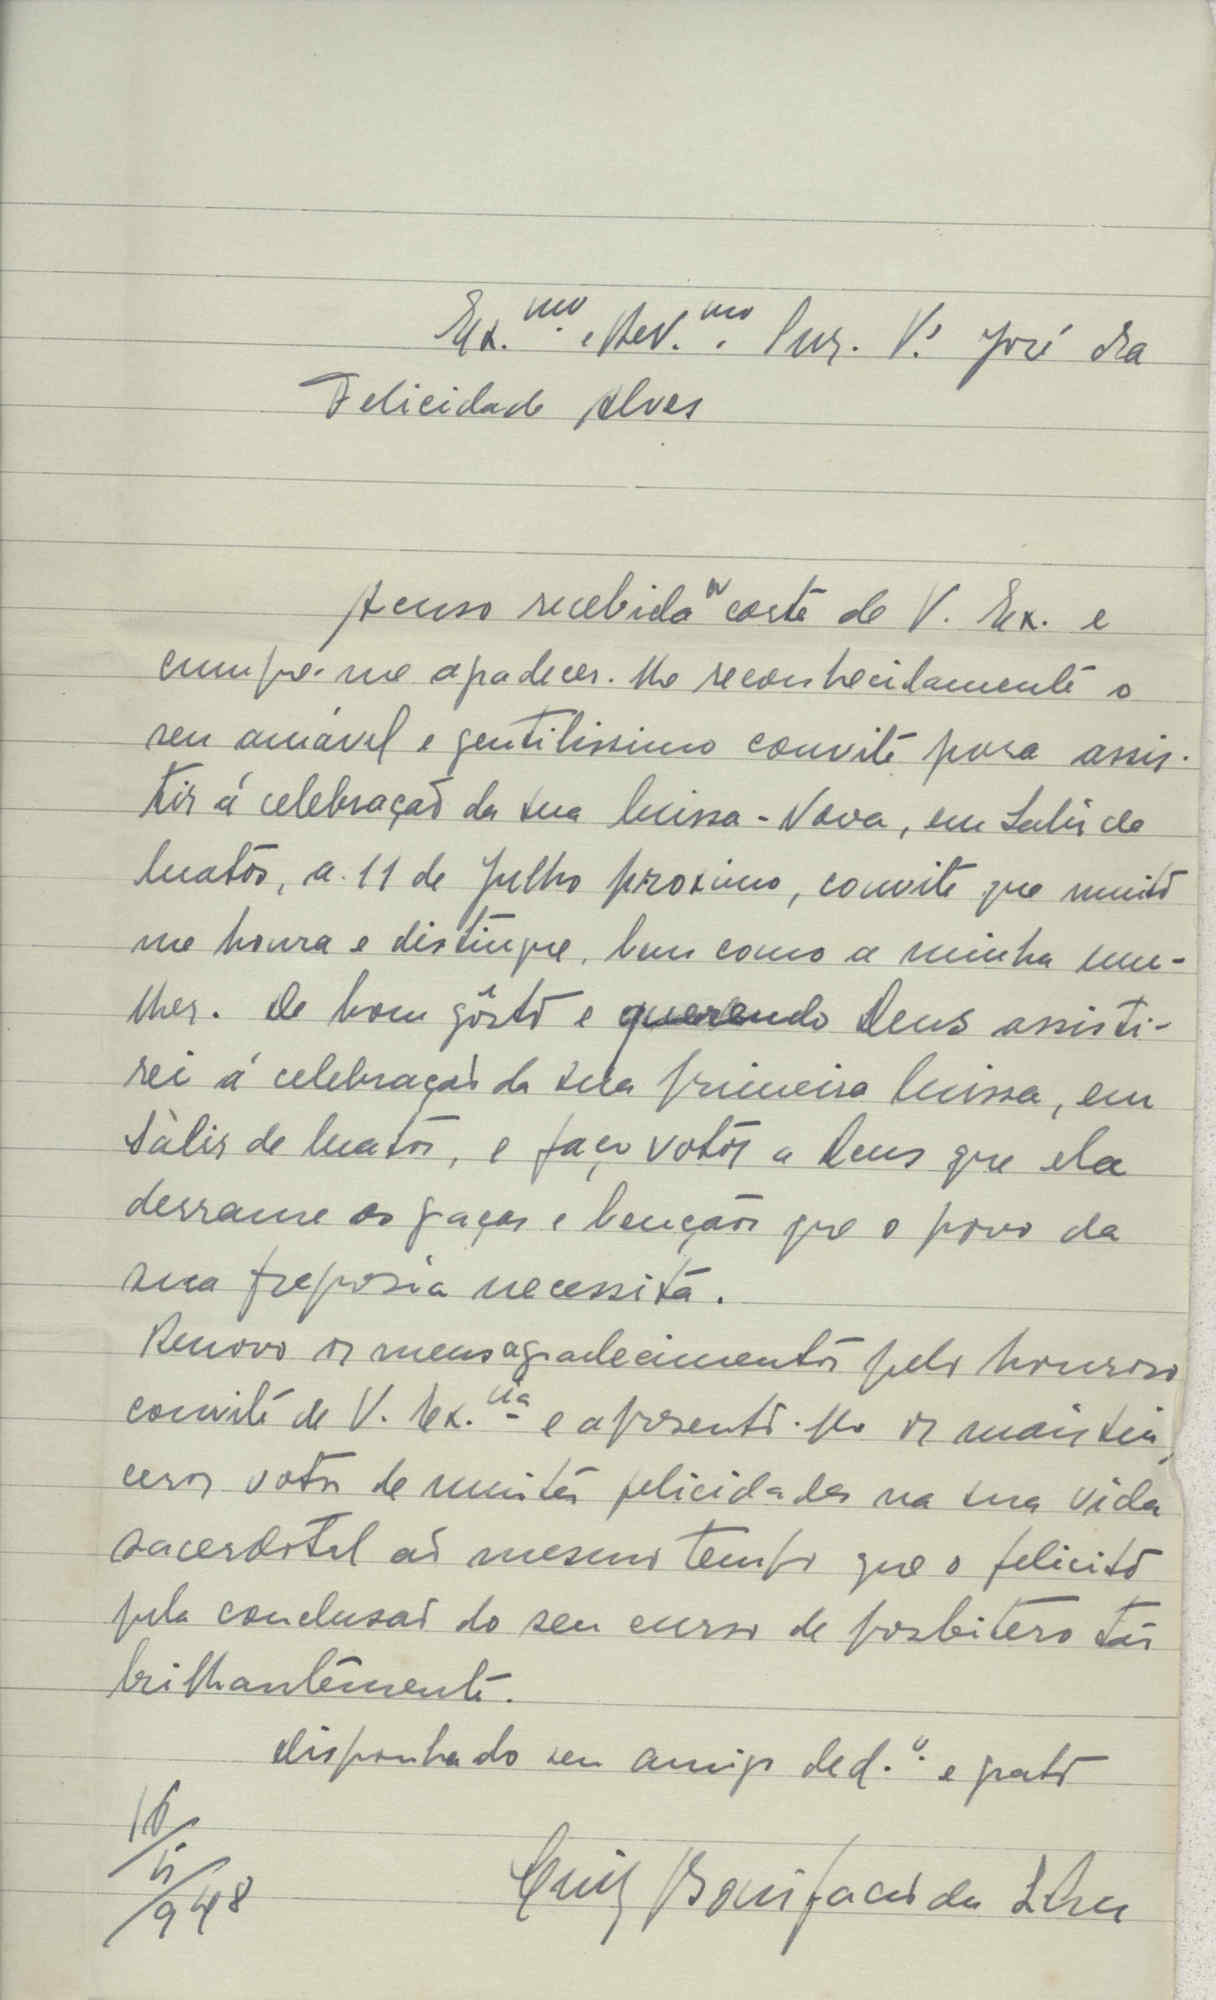 Ex.mo e Rev.mo Snr. P.e José da
Felicidade Alves
Acuso recebida a carta de V. Ex. e
cumpre-me agradecer-lhe reconhecidamente o
seu amável e gentilissimo convite para assis-
tir á celebração da sua Missa-Nova, em Salir de
Matos, a 11 de Julho proximo, convite que muito
me honra e distingue, bem como a minha mu-
lher. De bom gôsto e querendo Deus assisti-
rei á celebração da sua primeira Missa, em
Sàlir de Matos, e faço votos a Deus que ela
derrame as graças e bençãos que o povo da
sua freguesia necessita.
Renovo os meus agradecimentos pelo honroso
convite de V. Ex.cia e apresento-lho os mais sin
ceros votos de muitas felicidades na sua vida
sacerdotal ao mesmo tempo que o felicito
pela conclusão do seu curso de presbitero tão
brilhantemente.
disponha do seu amigo ded.o e grato
16/
/948
Luiz Bonifacio da Silva